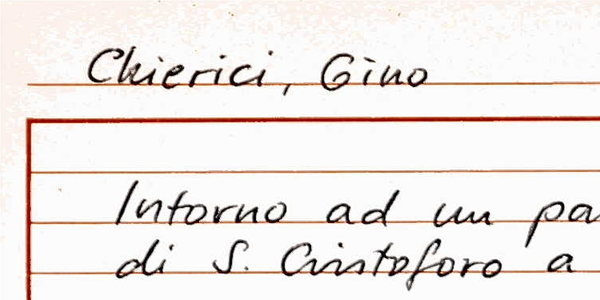 Chierici, Gino
Intorno ad un pa
di S. Cristoforo a